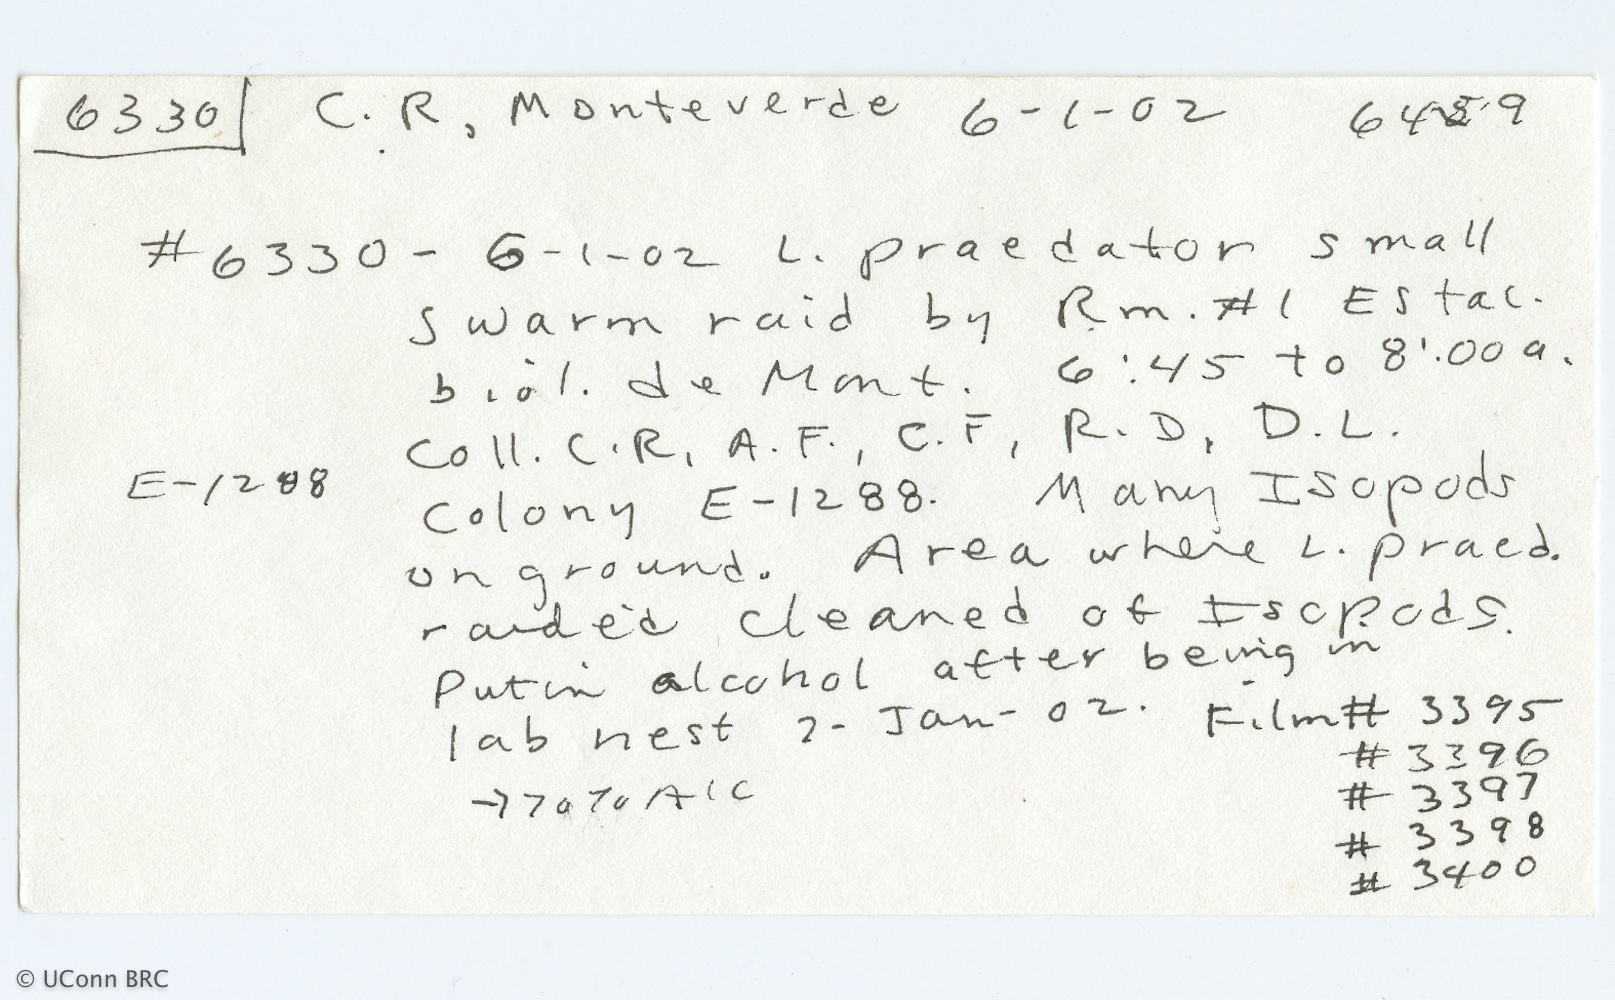 6330 C.R, Monteverde 6-1-02
#6330 - 6-1-02 L. praedator small
swarm raid by Rm. #1 Estac.
biol. de Mont. 6:45 to 8:00 a.
Coll. C.R, A.F., C.F, R.D, D.L.
E-1288
Colony E-1288. Many Isopods
on ground. Area where L. praed.
raided cleaned of Isopods.
Put in alcohol after being in
lab nest 2-Jan-02. Film# 3395
# 3396
# 3397
# 3398
# 3400
© UConn BRC